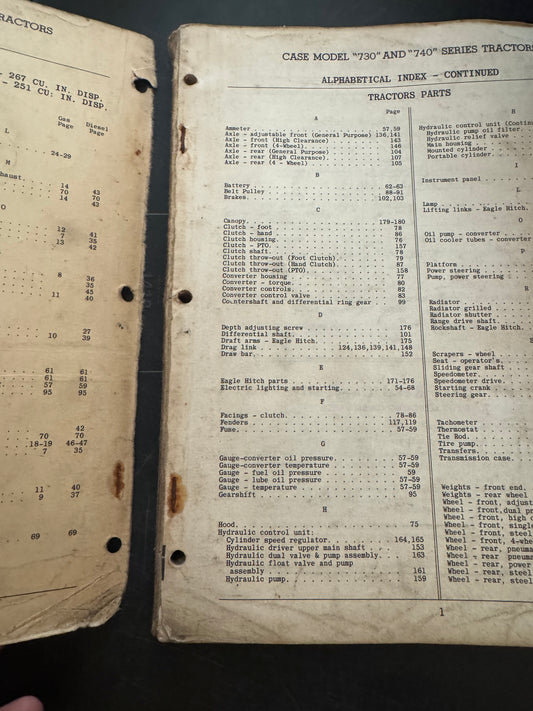 RACTORS
- 267 CU. IN. DISP.
- 251 CU. IN. DISP.
Gas Diesel
Page Page
L
24-29
M
haust.
14 43
70 70
14 43
O
12 42
7 41
13 35
42
8 36
35
45
11 40
27
10 39
61 61
61 61
57 59
95 95
42
70 70
18-19 46-47
7 35
11 40
9 37
69 69
CASE MODEL "730" AND "740" SERIES TRACTORS
ALPHABETICAL INDEX - CONTINUED
TRACTORS PARTS
Page
A
Ammeter 57,59
Axle - adjustable front (General Purpose) 136,141
Axle - front (High Clearance) 143
Axle - front (4-Wheel) 146
Axle - rear (General Purpose) 104
Axle - rear (High Clearance) 107
Axle - rear (4 - Wheel) 105
B
Battery 62-63
Belt Pulley 88-91
Brakes 102,103
C
Canopy 179-180
Clutch - foot 78
Clutch - hand 86
Clutch housing 76
Clutch - PTO 157
Clutch shaft 78
Clutch throw-out (Foot Clutch) 79
Clutch throw-out (Hand Clutch) 87
Clutch throw-out (PTO) 158
Converter housing 77
Converter - torque 80
Converter controls 82
Converter control valve 83
Countershaft and differential ring gear 99
D
Depth adjusting screw 176
Differential shaft 101
Draft arms - Eagle Hitch 175
Drag link 124,136,139,141,148
Draw bar 152
E
Eagle Hitch parts 171-176
Electric lighting and starting 54-68
F
Facings - clutch 78-86
Fenders 117,119
Fuse 57-59
G
Gauge-converter oil pressure 57-59
Gauge-converter temperature 57-59
Gauge - fuel oil pressure 59
Gauge - lube oil pressure 57-59
Gauge - temperature 57-59
Gearshift 95
H
Hood 75
Hydraulic control unit:
Cylinder speed regulator 164,165
Hydraulic driver upper main shaft 153
Hydraulic dual valve & pump assembly 163
Hydraulic float valve and pump
assembly 161
Hydraulic pump 159
H
Hydraulic control unit (Contin
Hydraulic pump oil filter
Hydraulic relief valve
Main housing
Mounted cylinder
Portable cylinder
I
Instrument panel
L
Lamp
Lifting links - Eagle Hitch
O
Oil pump - converter
Oil cooler tubes - converter
P
Platform
Power steering
Pump, power steering
R
Radiator
Radiator grilled
Radiator shutter
Range drive shaft
Rockshaft - Eagle Hitch
S
Scrapers - wheel
Seat - operator's
Sliding gear shaft
Speedometer
Speedometer drive
Starting crank
Steering gear
Tachometer
Thermostat
Tie Rod
Tire pump
Transfers
Transmission case
Weights - front end
Weights - rear wheel
Wheel - front, adjust
Wheel - front, dual p
Wheel - front, high c
Wheel - front, single
Wheel - front, steel
Wheel - front, 4-whe
Wheel - rear, pneuma
Wheel - rear pneuma
Wheel - rear, power
Wheel - rear, steel
Wheel - rear, steel
1